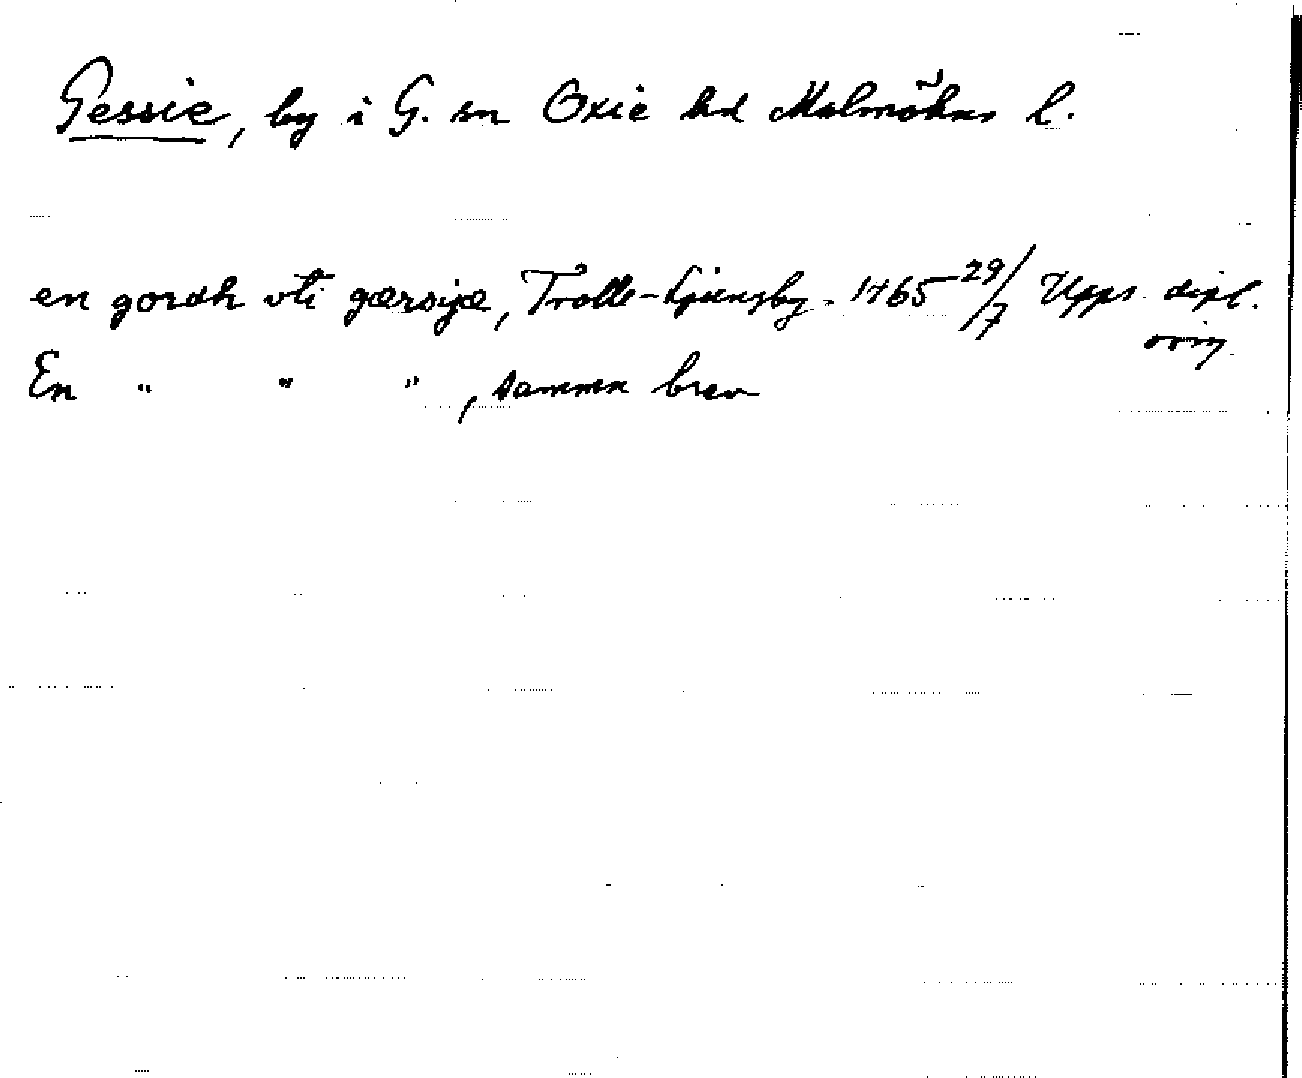 Gessie, by i G. sn Oxie hd Malmöhus l.
en gordh vti gærsijæ, Trolle-Ljungby. 1465 29/7 Upps. dipl.
orig.
En " " ", samma brev